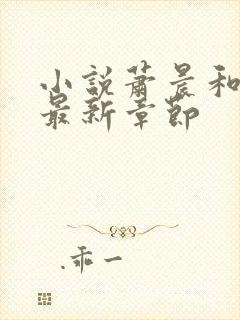 小説蕭晨和
最新章節
.乖一